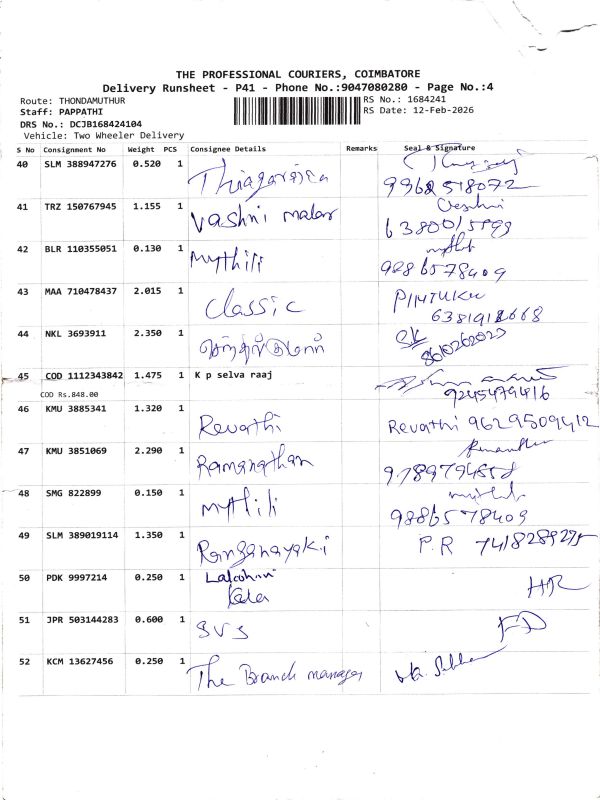 THE PROFESSIONAL COURIERS, COIMBATORE
Delivery Runsheet - P41 - Phone No.:9047080280 - Page No.:4
Route: THONDAMUTHUR RS No.: 1684241
Staff: PAPPATHI RS Date: 12-Feb-2026
DRS No.: DCJB168424104
Vehicle: Two Wheeler Delivery
S No Consignment No Weight PCS Consignee Details Remarks Seal & Signature
40 SLM 388947276 0.520 1 Thiagarajan
41 TRZ 150767945 1.155 1 Vashni malar
42 BLR 110355051 0.130 1 Mythili
43 MAA 710478437 2.015 1 Classic
6381918668
44 NKL 3693911 2.350 1
45 COD 1112343842 1.475 1 K p selva raaj
9245479416
COD Rs.848.00
46 KMU 3885341 1.320 1 Revathi Revathi 9629509412
47 KMU 3851069 2.290 1 Ramanathan
48 SMG 822899 0.150 1 Mythili
9886578409
49 SLM 389019114 1.350 1 Ranganayaki P.R 7418289275
50 PDK 9997214 0.250 1 Lakshmi HR
Kala
51 JPR 503144283 0.600 1 SVS FD
52 KCM 13627456 0.250 1 The Branch manager